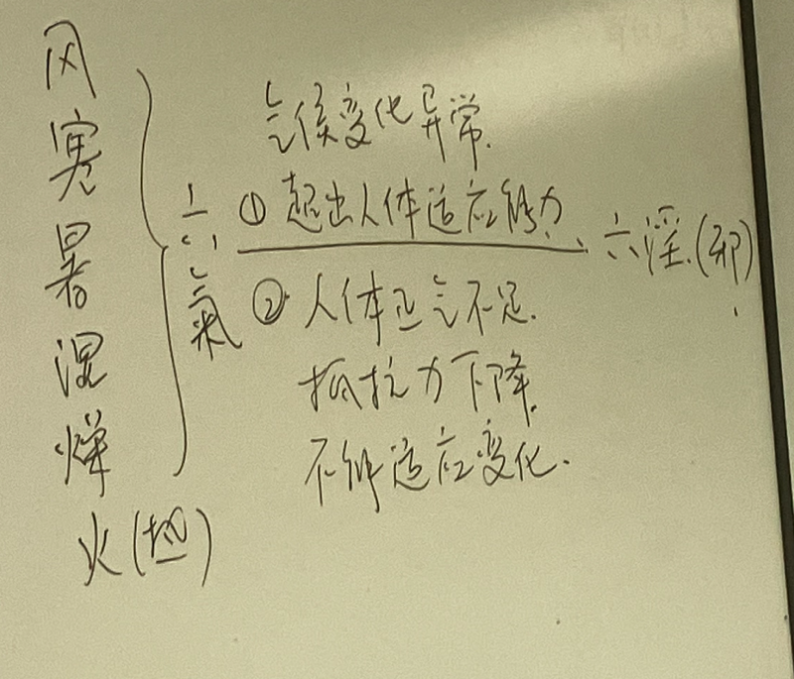 风
寒
暑
湿
燥
火(热)
六氣
气候变化异常.
① 超出人体适应能力、
② 人体正气不足.
抵抗力下降.
不能适应变化.
六淫.(邪)